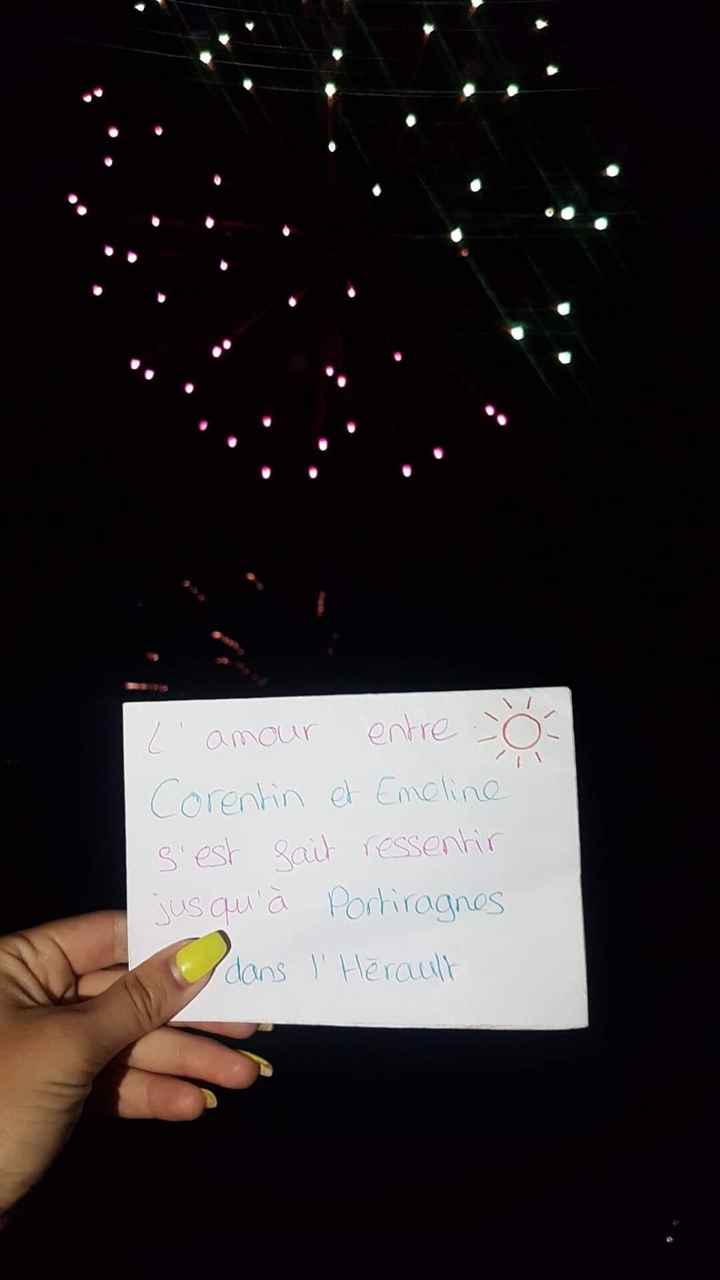 L'amour entre
Corentin et Emeline
s'est fait ressentir
jusqu'à Portiragnes
dans l'Hérault